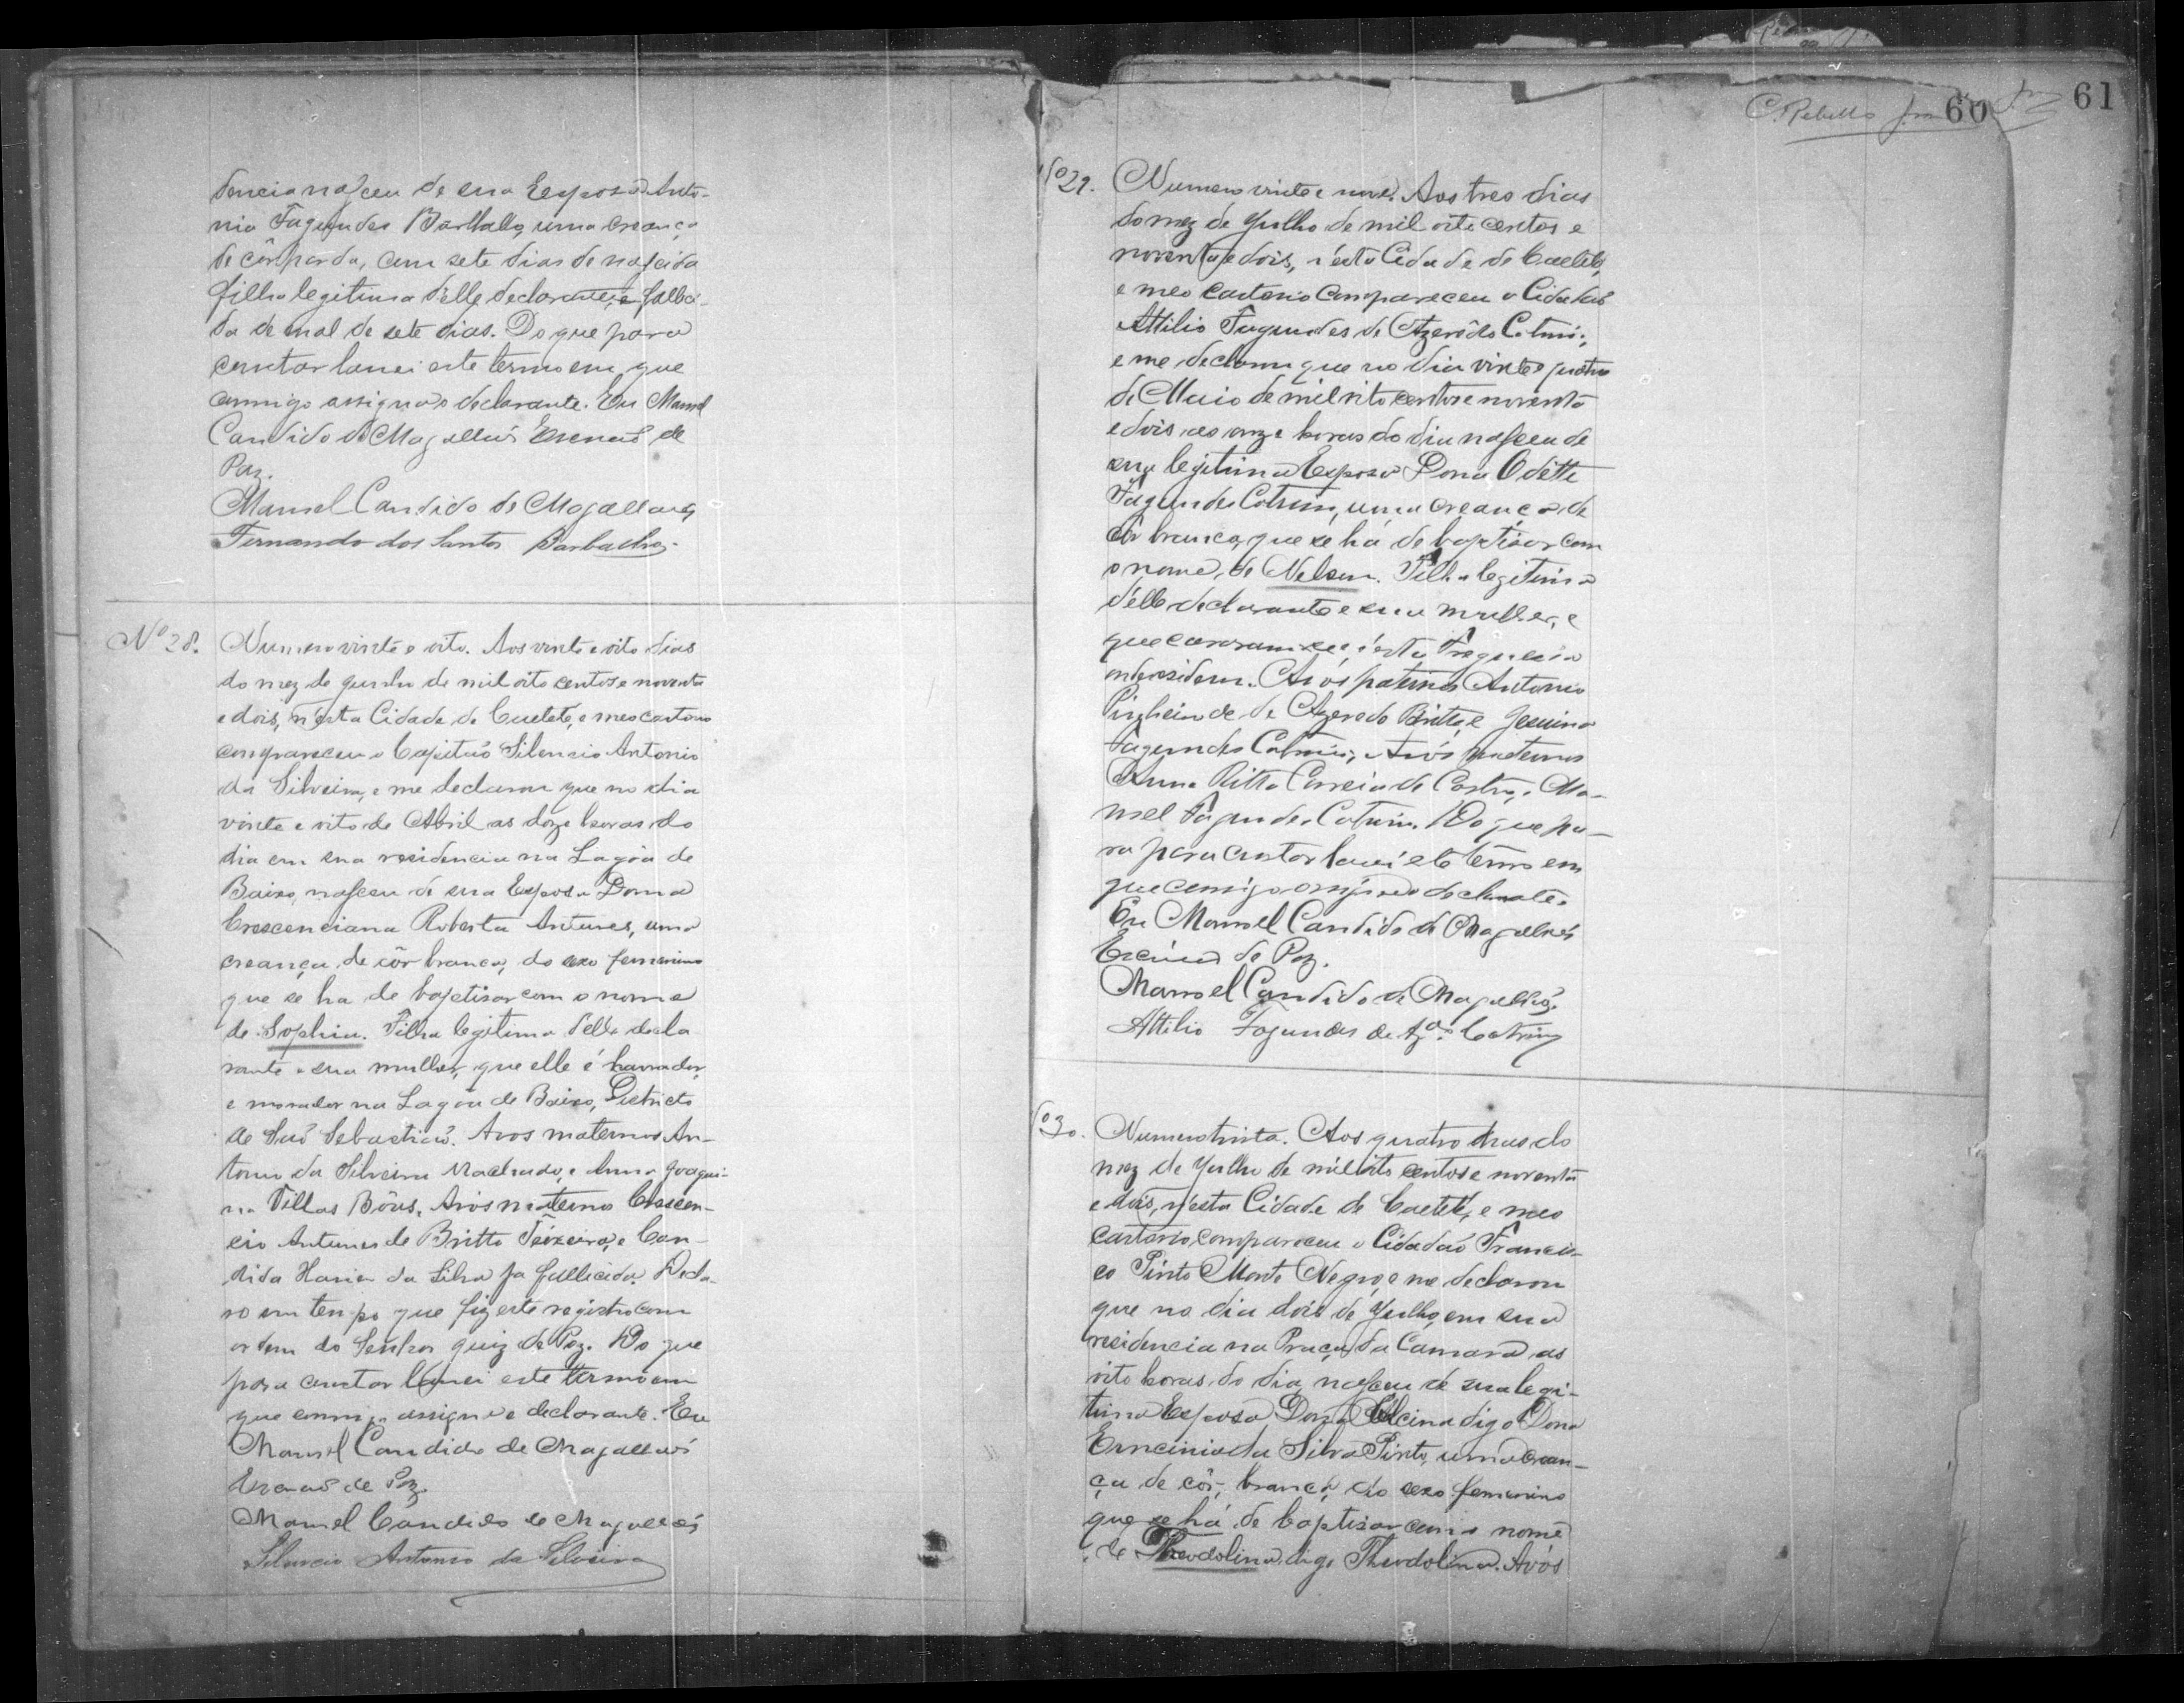 dencia nasceu de sua Esposa Anto-
nia Fagundes Barbalho, uma creança
de côr parda, com sete dias de nascida
filha legitima d'elle declarante, e falleci-
da de mal de sete dias. Do que para
constar lavrei este termo em que
commigo assigna o declarante. Eu Manoel
Candido de Magalhães Escrivaõ de
Paz.
Manoel Candido de Magalhães
Fernando dos Santos Barbalho
Nº 28. Numero vinte e oito. Aos vinte e oito dias
do mez de Junho de mil oito centos e noventa
e dois, n'esta Cidade de Caeteté, e meo cartorio
compareceu o Capitaõ Silencio Antonio
da Silveira, e me declarou que no dia
vinte e oito de Abril as doze horas do
dia em sua residencia na Lagôa de
Baixo, nasceu de sua Esposa Dona
Crescenciana Roberta Antunes, uma
creança de côr branca, do sexo feminino
que se ha de baptisar com o nome
de Sophia. Filha legitima d'elle decla
rante e sua mulher, que elle é lavrador,
e morador na Lagôa de Baixo, Districto
de Saõ Sebastiaõ. Avos maternos An-
tonio da Silveira Machado, e Anna Joaqui-
na Villas Bôas. Avós maternos Crescen-
cio Antunes de Britto Teixeira, e Can-
dida Maria da Silva ja fallecida. Decla-
ro em tempo que fiz este registro com
ordem do Senhor Juiz de Paz. Do que
para constar lavrei este termo em
que commigo assigna o declarante. Eu
Manoel Candido de Magalhães
Escrivaõ de Paz.
Manoel Candido de Magalhães
Silencio Antonio da Silveira
C. Rebello 60 61
Nº 29. Numero vinte e nove. Aos tres dias
do mez de Julho de mil oito centos e
noventa e dois, n'esta Cidade de Caeteté,
e meo cartorio compareceu o Cidadaõ
Attilio Fagundes de Azerêdo Cotrim;
e me declarou que no dia vinte e quatro
de Maio de mil oito centos e noventa
e dois, as onze horas do dia nasceu de
sua legitima Esposa Dona Odette
Fagundes Cotrim, uma creança de
côr branca, que se há de baptisar com
o nome de Nelson. Filho legitimo
d'elle declarante e sua mulher, e
que casaram-se n'esta Freguesia
onde residem. Avós paternos Antonio
Pinheiro de de Azeredo Britto, e Jesuina
Fagundes Cotrim; Avós maternos
Anna Ritta Correia de Castro, e Ma-
noel Fagundes Cotrim. Do que pa-
ra para constar lavrei este termo em
que comigo assigna o declarante.
Eu Manoel Candido de Magalhães
Escrivaõ de Paz.
Manoel Candido de Magalhães
Attilio Fagundes de Azº. Cotrim
Nº 30. Numero trinta. Aos quatro dias do
mez de Julho de mil oito centos e noventa
e dois, n'esta Cidade de Caeteté, e meo
cartorio, compareceu o Cidadaõ Francis-
co Pinto Monte Negro, e me declarou
que no dia dois de Julho, em sua
residencia na Praça da Camara as
oito horas do dia, nasceu de sua legi-
tima Esposa Dona Elcina digo Dona
Ermcinia da Silva Pinto, uma crean-
ça de côr, branca, do sexo feminino
que se há de baptisar com o nome
de Theodolina digo Theodolina. Avós